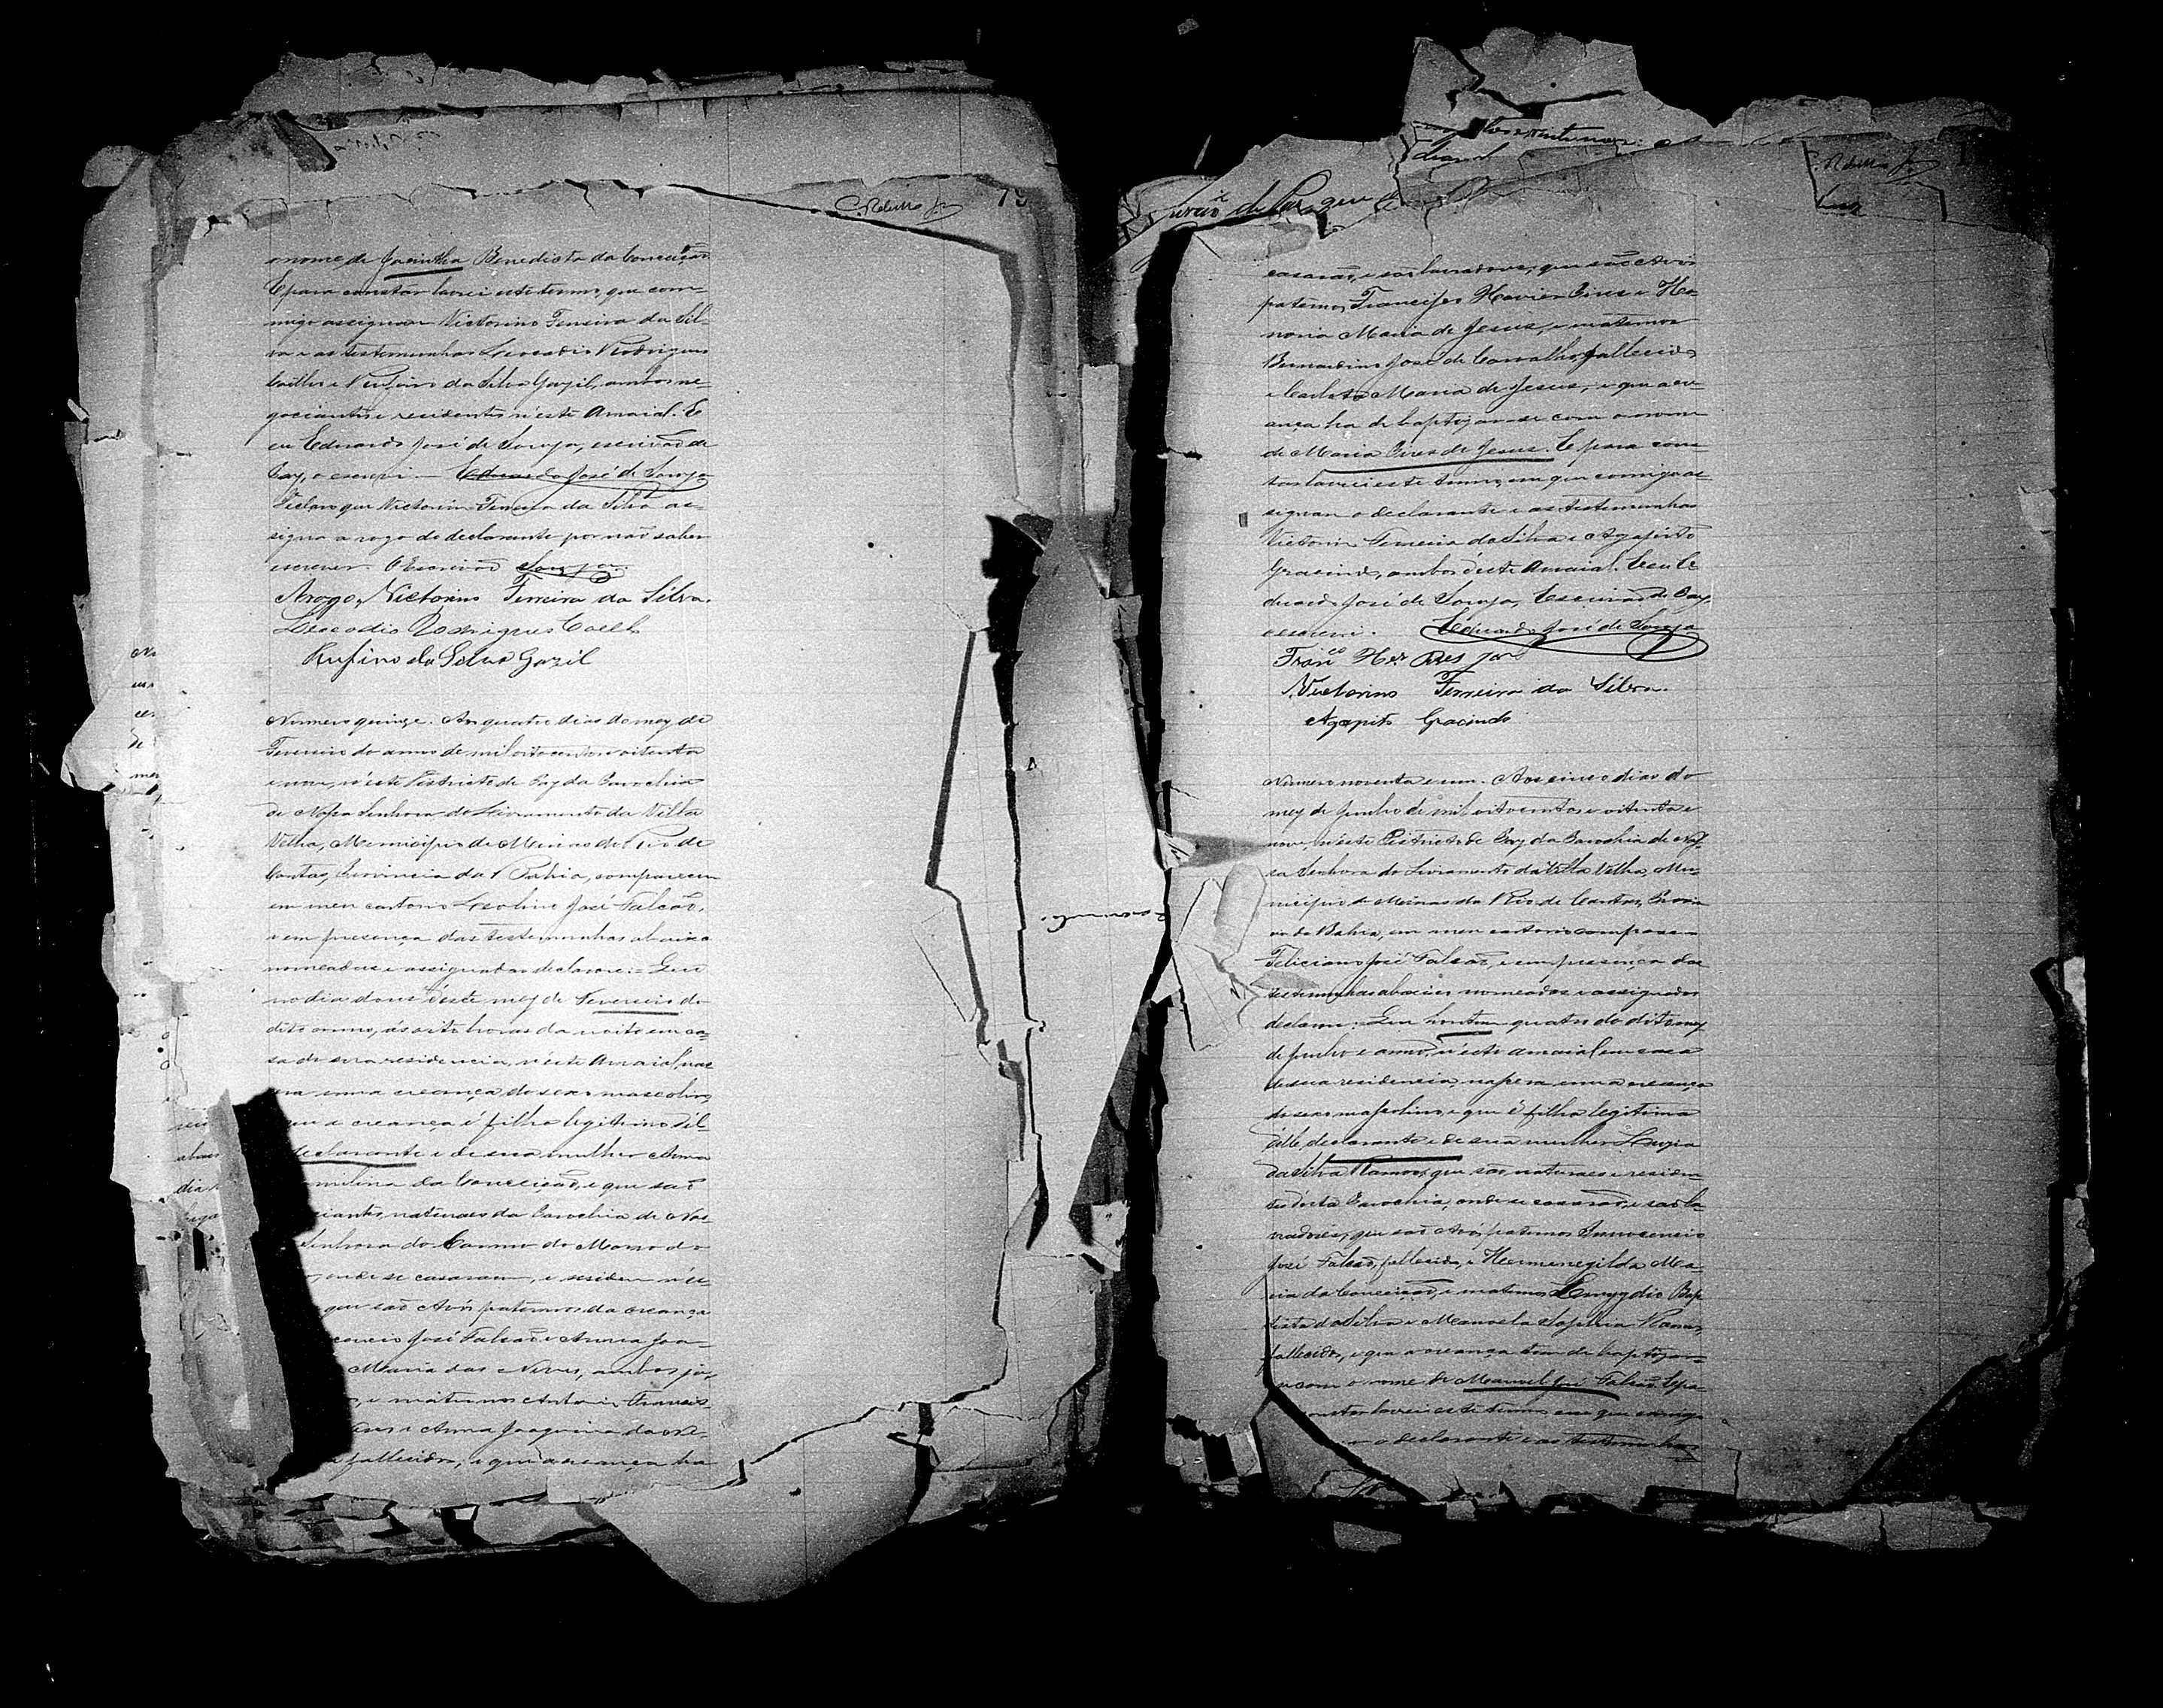 C. Rebello Jr
o nome de Jacintha Benedicta da Conceição
E para constar lavrei este termo, que com-
migo assignam Victorino Ferreira da Sil-
va e as testemunhas Leocadio Rodrigues
Coelho e Rufino da Silva Gazil, ambos ne-
gociantes e residentes n'este Arraial. E
eu Eduardo José de Souza, escrivão de
Paz, o escrevi. — Eduardo José de Souza
Declaro que Victorino Ferreira da Silva as-
signa a rogo do declarante por não saber
escrever. O Escrivão Souza.
Arogo, Victorino Ferreira da Silva.
Leocadio Rodrigues Coelho
Rufino da Silva Gazil
Numero quinze. Aos quatro dias do mez de
Fevereiro do anno de mil oito centos e oitenta
e nove, n'este Districto de Paz da Parochia
de Nossa Senhora do Livramento da Villa
Velha, Municipio de Minas do Rio de
Contas, Provincia da Bahia, compareceu
em meu cartorio José Falcão,
e em presença das testemunhas abaixo
nomeadas e assignadas declarou: = Que
no dia dous d'este mez de Fevereiro do
dito anno, ás oito horas da noite em ca-
sa de sua residencia, n'este Arraial, nas
uma creança do sexo masculino,
que a creança é filho legitimo d'el-
declarante e de sua mulher Anna
da Conceição, e que são
naturaes da Parochia de Nos-
Senhora do Carmo do Morro do
onde se casaram, e residem n'es-
que são Avós paternos da creança
José Falcão e Anna Joa-
Maria das Neves, ambos já
e maternos Antonio Francis-
e Anna Joaquina
fallecidos, e que a creança ha
Rebello Jr
casarão, e são lavradores, que são Avós
paternos Francisco Xavier Pires e Ho-
noria Maria de Jesus, e maternos
Bernardino José de Carvalho, fallecido
e Carlota Maria de Jesus, e que a cre-
ança ha de baptizar-se com o nome
de Maria Pires de Jesus. E para cons-
tar lavrei este termo, em que comigo as-
signam o declarante e as testemunhas
Victorino Ferreira da Silva e Agapito
Gracindo, ambos d'este Arraial. Eeu E
duardo José de Souza, Escrivão de Paz,
o escrevi. Eduardo José de Souza
Franco Xer Pires Jor
Victorino Ferreira da Silva.
Agapito Gracindo
Numero noventa e um. Aos cinco dias do
mez de Junho de mil oitocentos e oitenta e
nove, n'este Districto de Paz da Parochia de Nos-
sa Senhora do Livramento da Villa Velha, Mu-
nicipio de Minas do Rio de Contas, Provin
da Bahia, em meu cartorio compareceo
Feliciano José Falcão, e em presença das
testemunhas abaixo nomeadas e assignadas
declarou: Que hontem quatro do dito mez
de Junho e anno, n'este arraial em casa
de sua residencia nascera uma creança
do sexo masculino, e que é filho legitimo
d'elle declarante e de sua mulher Luzia
da Silva Ramos, que são naturaes e residen-
tes d'esta Parochia, onde se casarão, e são la-
vradores, que são Avós paternos Innocencio
José Falcão, fallecido, e Hermenegilda Ma-
ria da Conceição, e maternos Emygdio Bap-
tista da Silva e Manoela Ramos,
fallecidos, e que a creança tem de baptizar-
se com o nome de Manoel José Falcão. E pa-
constar lavrei este termo em que comigo
o declarante e as testemunhas